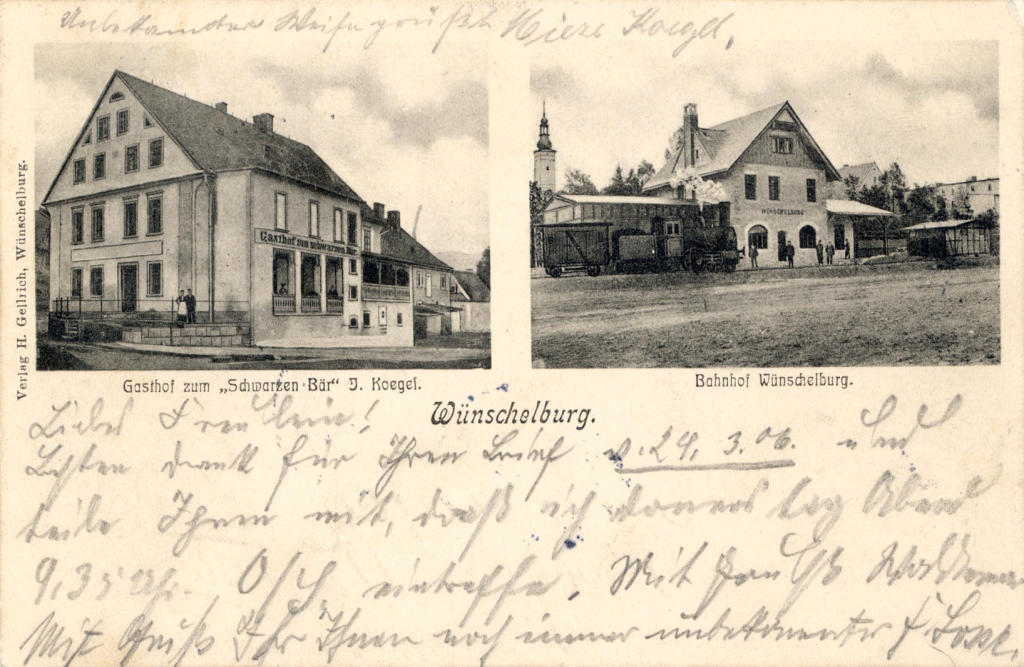 Unbekannter Weise grüßt Mieze Koegel,
Verlag H. Gellrich, Wünschelburg.
Gasthof zum schwarzen Bär
WÜNSCHELBURG
Gasthof zum „Schwarzen Bär“ J. Koegel.
Bahnhof Wünschelburg.
Wünschelburg.
Liebes Freulein!
Besten dank für Ihren Brief v. 24. 3. 06. und
teile Ihnen mit, daß ich doners tag Abend
9,35 Uhr. eintreffe. Mit
Mit Gruß Ihr Ihnen noch immer unbekannter